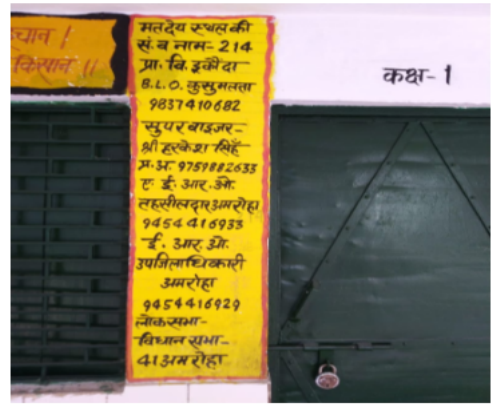 चान ।
किसान ॥
मतदेय स्थल की
सं. व नाम- 214
प्रा. वि. इकौंदा
B.L.O. कुसुमलता
9837410682
सुपरवाइजर-
श्री हरकेश सिंह
प्र.अ. 9759882633
ए. ई. आर. ओ.
तहसीलदार अमरोहा
9454416933
ई. आर. ओ.
उपजिलाधिकारी
अमरोहा
9454416929
लोकसभा-
विधान सभा-
41 अमरोहा
कक्ष- 1